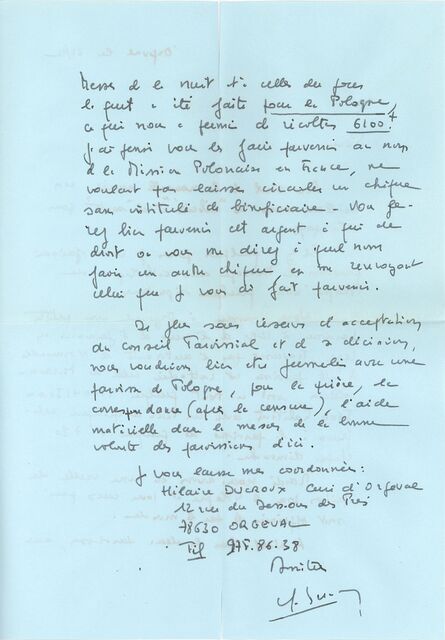 Messe de la nuit et celles du jour
la quête a été faite pour la Pologne,
ce qui nous a permis de récolter 6100 F
J'ai pensé vous les faire parvenir au nom
de la Mission Polonaise en France, ne
voulant pas laisser circuler un chèque
sans intitulé de bénéficiaire - Vous fe-
rez bien parvenir cet argent à qui de
droit ou vous me direz à quel nom
faire un autre chèque, en me renvoyant
celui que je vous ai fait parvenir.
De plus sous réserve d'acceptation
du Conseil Paroissial et de sa décision,
nous voudrions bien être jumelés avec une
paroisse de Pologne, pour la prière, la
correspondance (après la censure), l'aide
matérielle dans la mesure de la bonne
volonté des paroissiens d'ici.
Je vous laisse mes coordonnées :
Hilaire DUCROUX Curé d'Orgeval
12 rue du Dessous des Prés
78630 ORGEVAL
Tél 975.86.38
Amitiés